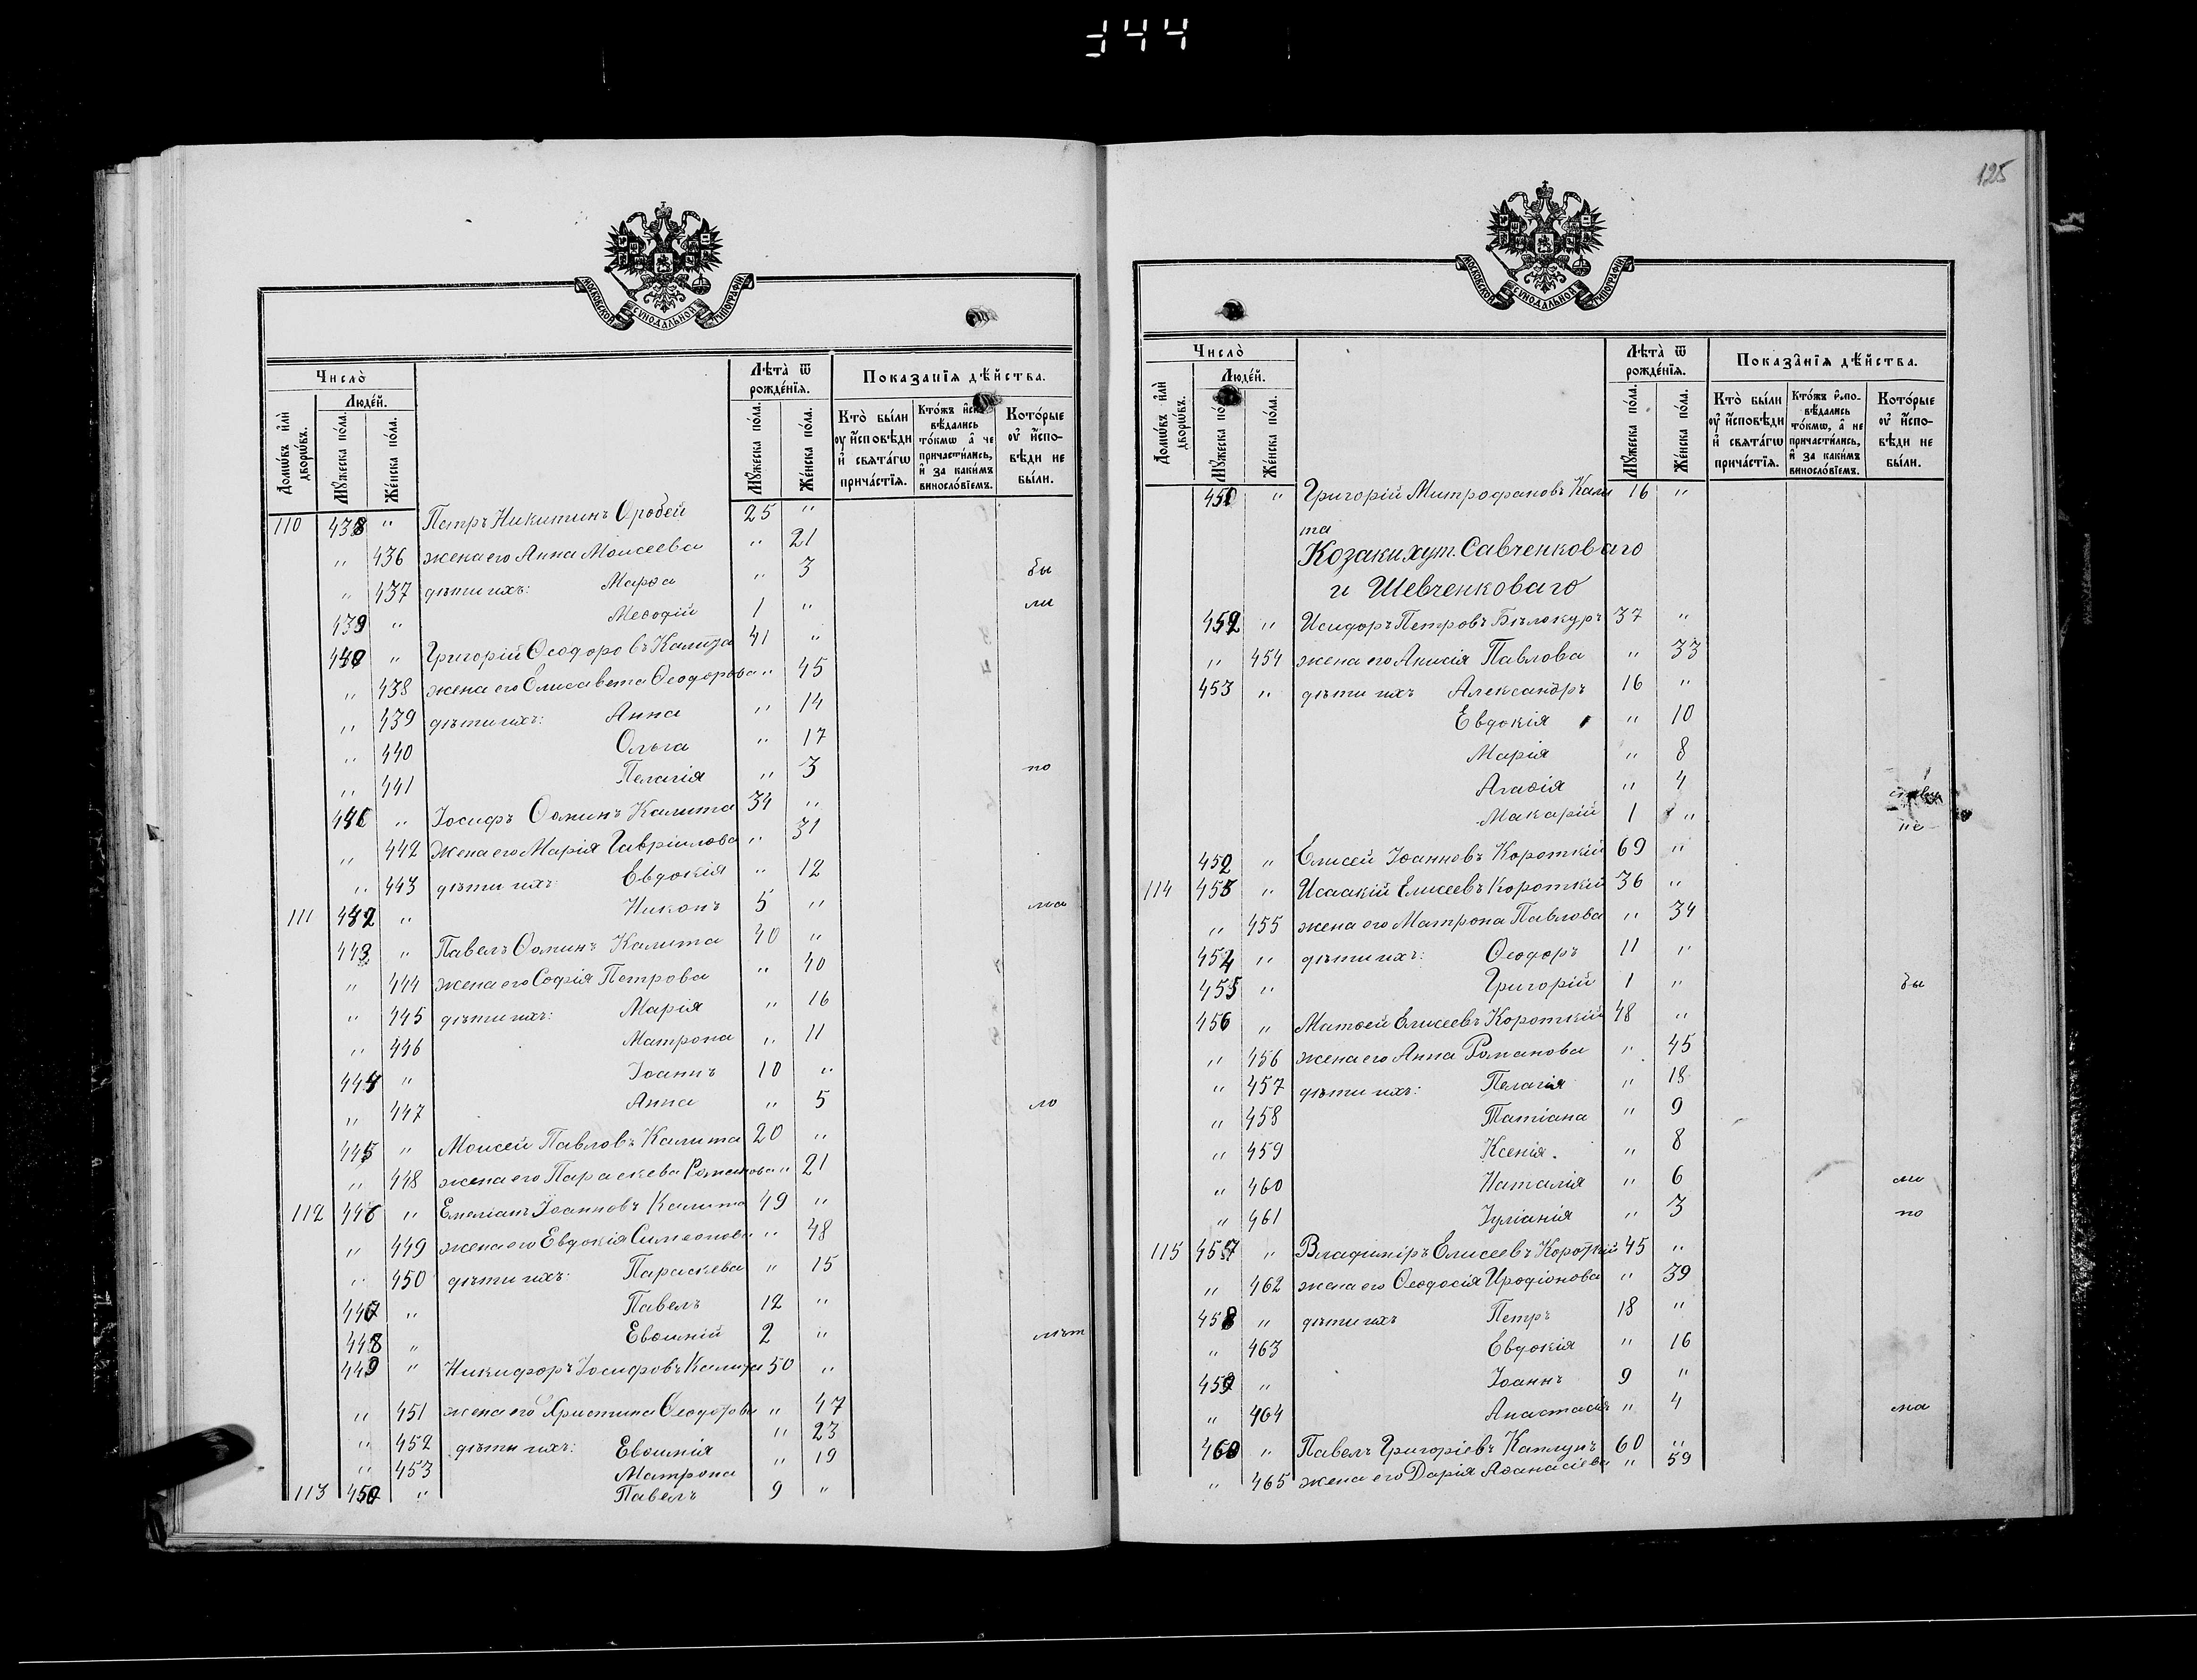 344
МОСКОВСКОЙ СУНОДАЛЬНОЙ ТИПОГРАФІИ
Число̀
Людéй.
Домѡ́въ и҆лѝ дворѡ́въ.
Мꙋ́жеска по́ла.
Же́нска по́ла.
Лѣ́та ѿ рожде́нїѧ.
Мꙋ́жеска по́ла.
Же́нска по́ла.
Показа́нїѧ дѣ́йства.
Кто̀ бы́ли ᲂу҆ и҆́сповѣди и҆ свѧта́гѡ прича́стїѧ.
Кто́жъ и҆сповѣ́дались то́кмѡ, а҆ не причасти́лись, и҆ за каки́мъ винослѡ́вїемъ.
Кото́рые ᲂу҆ и҆́сповѣди не бы́ли.
110 438 " Петръ Никитинъ Оробей 25 "
" 436 жена его Анна Моисеева " 21
" 437 дѣти ихъ: Марѳа " 3 бы
439 " Меѳодій 1 " ли
440 " Григорій Ѳеодоровъ Калита 41 "
" 438 жена его Елисавета Ѳеодорова " 45
" 439 дѣти ихъ: Анна " 14
" 440 Ольга " 17
" 441 Пелагія " 3 по
441 " Іосифъ Ѳоминъ Калита 34 "
" 442 Жена его Марія Гавріилова " 31
" 443 дѣти ихъ: Евдокія " 12
111 442 " Никонъ 5 " ма
443 " Павелъ Ѳоминъ Калита 40 "
" 444 жена его Софія Петрова " 40
" 445 дѣти ихъ: Марія " 16
" 446 Матрона " 11
444 " Іоаннъ 10 "
" 447 Анна " 5 ло
445 " Моисей Павловъ Калита 20 "
" 448 жена его Параскева Романова " 21
112 446 " Емеліанъ Іоанновъ Калита 49 "
" 449 жена его Евдокія Симеонова " 48
" 450 дѣти ихъ: Параскева " 15
447 " Павелъ 12 "
448 " Евѳимій 2 " лѣт
449 " Никифоръ Іосифовъ Калита 50 "
" 451 жена его Христина Ѳеодорова " 47
" 452 дѣти ихъ: Евѳимія " 23
" 453 Матрона " 19
113 450 " Павелъ 9 "
125
МОСКОВСКОЙ СУНОДАЛЬНОЙ ТИПОГРАФІИ
Число̀
Людéй.
Домѡ́въ и҆лѝ дворѡ́въ.
Мꙋ́жеска по́ла.
Же́нска по́ла.
Лѣ́та ѿ рожде́нїѧ.
Мꙋ́жеска по́ла.
Же́нска по́ла.
Показа́нїѧ дѣ́йства.
Кто̀ бы́ли ᲂу҆ и҆́сповѣди и҆ свѧта́гѡ прича́стїѧ.
Кто́жъ и҆сповѣ́дались то́кмѡ, а҆ не причасти́лись, и҆ за каки́мъ винослѡ́вїемъ.
Кото́рые ᲂу҆ и҆́сповѣди не бы́ли.
451 " Григорій Митрофановъ Кали 16 "
та
Козаки хут. Савченковаго
и Шевченковаго
452 " Исидоръ Петровъ Бѣлокуръ 37 "
" 454 жена его Анисія Павлова " 33
453 " дѣти ихъ Александръ 16 "
Евдокія " 10
Марія " 8
Агаѳія " 4
Макарій 1 " не
452 " Елисей Іоанновъ Короткій 69 "
114 453 " Исаакій Елисеевъ Короткій 36 "
" 455 жена его Матрона Павлова " 34
454 " дѣти ихъ: Ѳеодоръ 11 "
455 " Григорій 1 " бы
456 " Матѳей Елисеевъ Короткій 48 "
" 456 жена его Анна Романова " 45
" 457 дѣти ихъ: Пелагія " 18
" 458 Татіана " 9
" 459 Ксенія. " 8
" 460 Наталія " 6 ли
" 461 Іуліанія " 3 по
115 457 " Владиміръ Елисеевъ Короткій 45 "
" 462 жена его Ѳеодосія Иродіонова " 39
458 " дѣти ихъ Петръ 18 "
" 463 Евдокія " 16
459 " Іоаннъ 9 "
" 464 Анастасія " 4 ма
460 " Павелъ Григоріевъ Каплунъ 60 "
" 465 жена его Дарія Аѳанасіева " 59